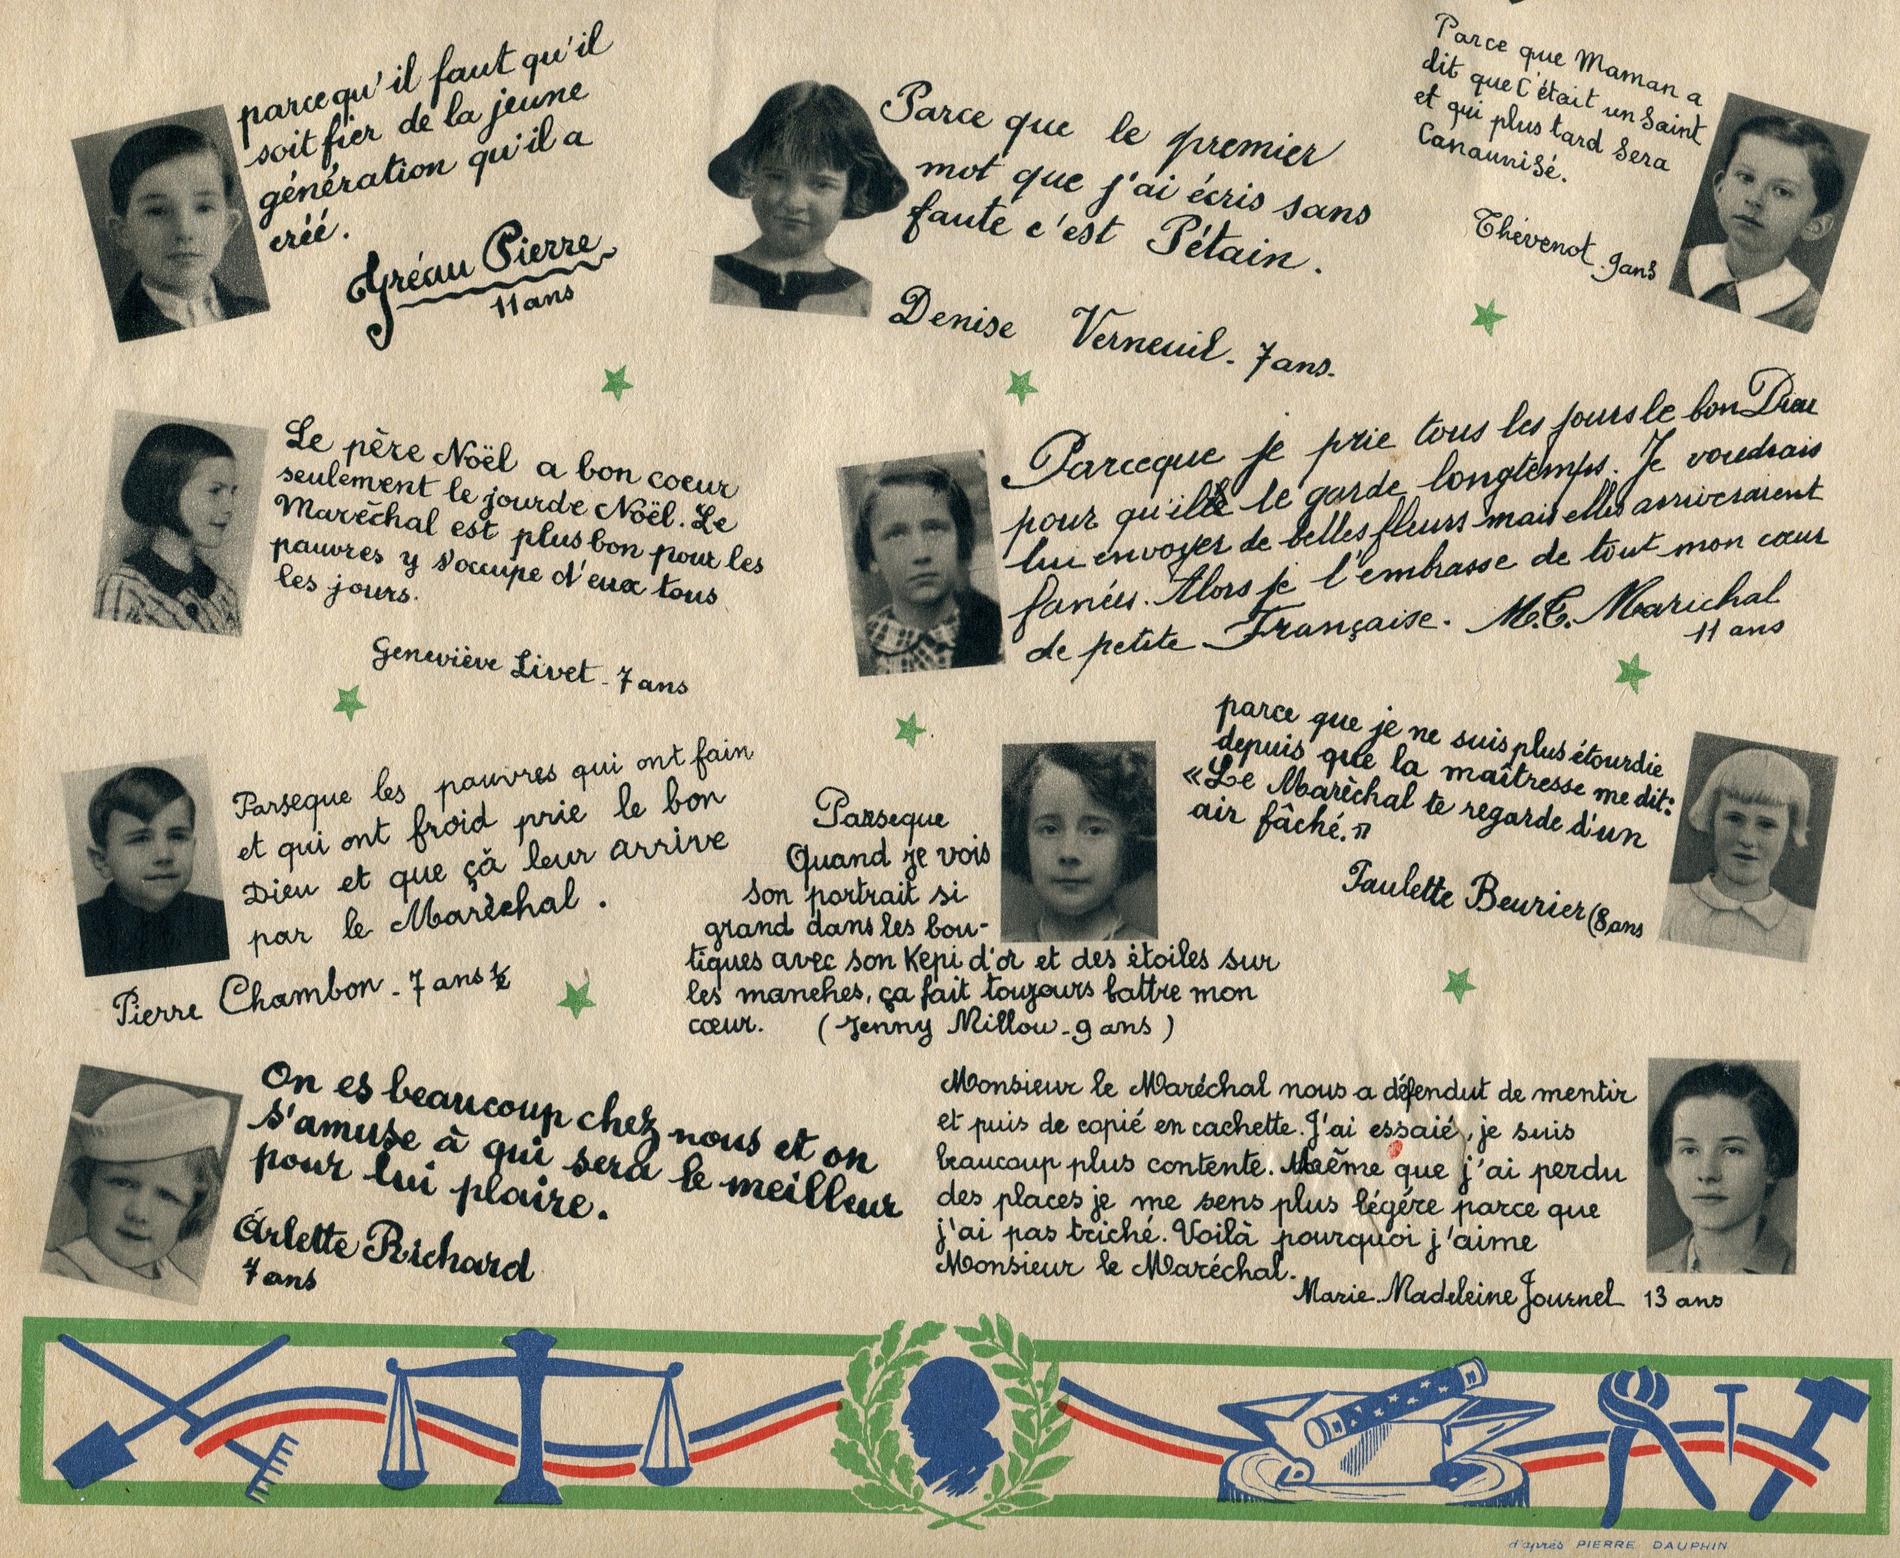 parcequ'il faut qu'il
soit fier de la jeune
génération qu'il a
créé.
Gréau Pierre
11 ans
Parce que le premier
mot que j'ai écris sans
faute c'est Pétain.
Denise Verneuil - 7 ans.
Parce que Maman a
dit que C'était un Saint
et qui plus tard Sera
Canaunisé.
Thévenot 9ans
Le père Noël a bon coeur
seulement le jourde Noël. Le
Maréchal est plus bon pour les
pauvres y s'occupe d'eux tous
les jours.
Geneviève Livet - 7 ans
Parceque je prie tous les jours le bon Dieu
pour qu'il le garde longtemps. Je voudrais
lui envoyer de belles fleurs mais elles arriveraient
fanées. Alors je l'embrasse de tout mon cœur
de petite Française. M.C. Marichal
11 ans
Parseque les pauvres qui ont fain
et qui ont froid prie le bon
Dieu et que çà leur arrive
par le Maréchal.
Pierre Chambon - 7 ans ½
Parseque
Quand je vois
son portrait si
grand dans les bou-
tiques avec son Kepi d'or et des étoiles sur
les manches, ça fait toujours battre mon
cœur. (Jenny Millou - 9 ans)
parce que je ne suis plus étourdie
depuis que la maîtresse me dit:
«Le Maréchal te regarde d'un
air fâché.»
Paulette Beurier (8 ans
On es beaucoup chez nous et on
s'amuse à qui sera le meilleur
pour lui plaire.
Arlette Richard
7 ans
Monsieur le Maréchal nous a défendut de mentir
et puis de copié en cachette. J'ai essaié, je suis
beaucoup plus contente. Maême que j'ai perdu
des places je me sens plus légére parce que
j'ai pas triché. Voilà pourquoi j'aime
Monsieur le Maréchal.
Marie-Madeleine Journel 13 ans
d'après PIERRE DAUPHIN